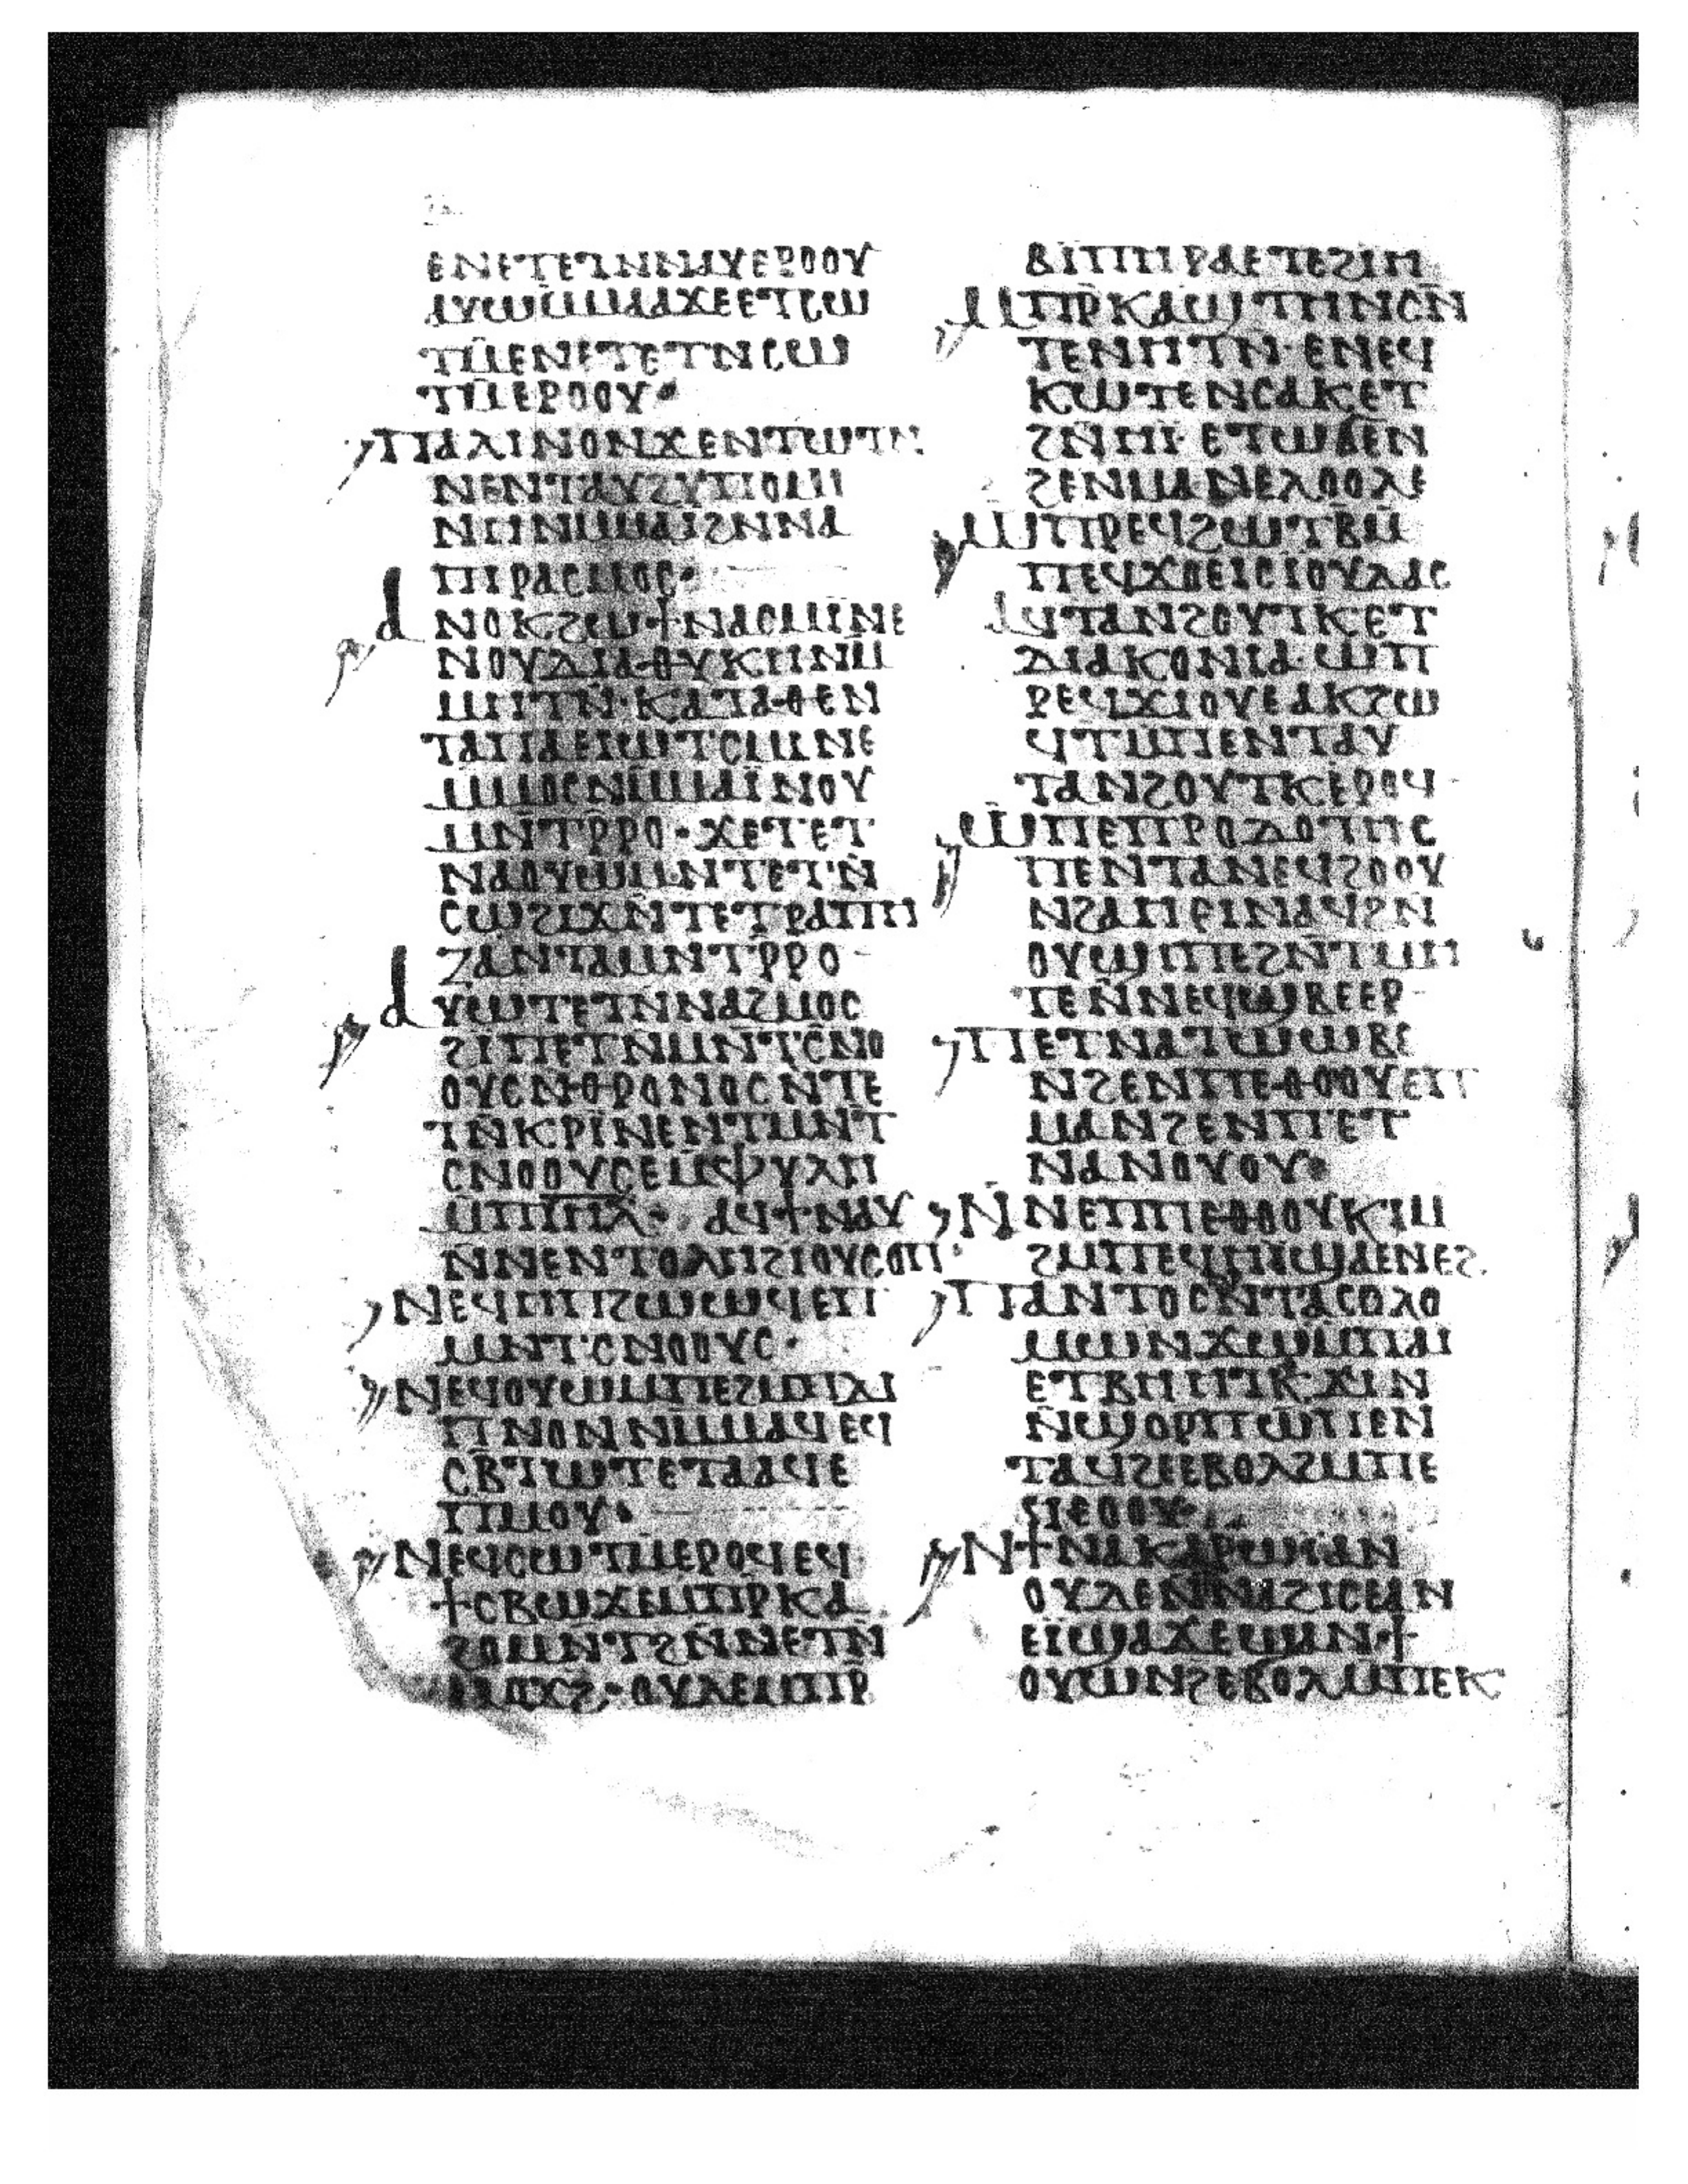 ⲉⲛⲉⲧⲉⲧⲛⲛⲁⲩⲉⲣⲟⲟⲩ
ⲁⲩⲱⲙⲙⲁⲁϫⲉⲉⲧⲥⲱ
ⲧⲙⲉⲛⲉⲧⲉⲧⲛⲥⲱ
ⲧⲙⲉⲣⲟⲟⲩ·
ⲡⲁⲗⲓⲛⲟⲛϫⲉⲛⲧⲱⲧⲛ
ⲛⲉⲛⲧⲁⲩϩⲩⲡⲟⲙⲓ
ⲛⲏⲛⲙⲙⲁⲓϩⲛⲛⲁ
ⲡⲓⲣⲁⲥⲙⲟⲥ·
ⲁⲛⲟⲕϩⲱϯⲛⲁⲥⲙⲓⲛⲉ
ⲛⲟⲩⲇⲓⲁⲑⲩⲕⲏⲛⲙ
ⲙⲏⲧⲛ̄·ⲕⲁⲧⲁⲑⲉⲛ
ⲧⲁⲡⲁⲉⲓⲱⲧ·ⲥⲙⲓⲛⲉ
ⲙⲙⲟⲥⲛⲙⲙⲁⲓ̈ⲛⲟⲩ
ⲙⲛⲧⲣ̄ⲣⲟ·ϫⲉⲧⲉⲧ
ⲛⲁⲟⲩⲱⲙⲛⲧⲉⲧⲛ̄
ⲥⲱϩⲓϫⲛ̄ⲧⲉⲧⲣⲁⲡⲏ
ⲍⲁⲛⲧⲁⲙⲛⲧⲣ̄ⲣⲟ-
ⲁⲩⲱⲧⲉⲧⲛⲛⲁϩⲙⲟⲥ
ϩⲓⲡⲉⲧⲛⲙⲛⲧⲥ̄ⲛⲟ
ⲟⲩⲥⲛⲑⲣⲟⲛⲟⲥⲛⲧⲉ
ⲧⲛ̄ⲕⲣⲓⲛⲉⲛⲧⲙⲛⲧ
ⲥⲛⲟⲟⲩⲥⲉⲙⲫⲩⲗⲏ
ⲙⲡⲓⲏ̄ⲗ̄· ⲁϥϯⲛⲁⲩ
ⲛⲛⲉⲛⲧⲟⲗⲏϩⲓⲟⲩⲥⲟⲡ·
ⲛⲉϥⲏⲡϩⲱⲱϥⲉⲡ
ⲙⲛⲧ·ⲥⲛⲟⲟⲩⲥ·
ⲛⲉϥⲟⲩⲱⲙⲙⲡⲉϩⲙⲡⲓⲇⲓ
ⲡⲛⲟⲛⲛⲙⲙⲁϥⲉϥ
ⲥⲃⲧⲱⲧⲉⲧⲁⲁϥⲉ
ⲡⲙⲟⲩ·
ⲛⲉϥⲥⲱⲧⲙⲉⲣⲟϥⲉϥ
ϯⲥⲃⲱϫⲉⲙⲡⲣ̄ⲕⲁ
ϩⲟⲙⲛⲧϩⲛ̄ⲛⲉⲧⲛ̄
ⲙⲟϫϩ·ⲟⲩⲇⲉⲙⲡⲣ̄
ⲃⲓⲡⲏⲣⲁⲉⲧⲉϩⲓⲏ
ⲙⲡⲣ̄ⲕⲁϣⲧⲏⲛⲥⲛ̄
ⲧⲉⲛⲧⲏⲧⲛ̄·ⲉⲛⲉϥ
ⲕⲱⲧⲉⲛⲥⲁⲕⲉⲧ
ϩⲛⲏⲓ·ⲉⲧⲱϭⲉⲛ
ϩⲉⲛⲙⲁⲛⲉⲗⲟⲟⲗⲉ
ⲱⲡⲣⲉϥϩⲱⲧⲃ̄ⲙ
ⲡⲉϥϫⲟⲉⲓⲥⲓⲟⲩⲇⲁⲥ
ⲁⲩⲧⲁⲛϩⲟⲩⲧⲕⲉⲧ
ⲇⲓⲁⲕⲟⲛⲓⲁ·ⲱⲡ
ⲣⲉϥϫⲓⲟⲩⲉⲁⲕϩⲱ
ϥⲧⲙⲡⲉⲛⲧⲁⲩ
ⲧⲁⲛϩⲟⲩⲧⲕⲉⲣⲟϥ-
ⲱⲡⲉⲡⲣⲟⲇⲟⲧⲏⲥ
ⲡⲉⲛⲧⲁⲛⲉϥϩⲟⲟⲩ
ⲛϩⲁⲏⲉⲓⲛⲁⲩϩⲛ
ⲟⲩϣⲏⲡⲉϩⲛ̄ⲧⲙⲏ
ⲧⲉⲛ̄ⲛⲉϥϣⲃⲉⲉⲣ-
ⲡⲉⲧⲛⲁⲧⲱⲱⲃⲉ
ⲛϩⲉⲛⲡⲉⲑⲟⲟⲩⲉⲡ
ⲙⲁⲛϩⲉⲛⲡⲉⲧ
ⲛⲁⲛⲟⲩⲟⲩ·
ⲛⲛⲉⲡⲡⲉⲑⲟⲟⲩⲕⲓⲙ
ϩⲙⲡⲉϥⲏⲓ̈ϣⲁⲉⲛⲉϩ.
ⲡⲁⲛⲧⲟⲥⲛ̄ⲧⲁⲥⲟⲗⲟ
ⲙⲱⲛϫⲉⲱⲙⲡⲁⲓ
ⲉⲧⲃⲏⲏⲧⲕ̄ϫⲓⲛ
ⲛ̄ϣⲟⲣⲡⲱⲡⲉⲛ
ⲧⲁϥϩⲉⲉⲃⲟⲗϩⲙⲡⲉ
ϥⲉⲟⲟⲩ·
ⲛϯⲛⲁⲕⲁⲣⲱⲓⲁⲛ
ⲟⲩⲇⲉⲛ̄ⲛⲁϩⲓⲥⲉⲁⲛ
ⲉⲓ̈ϣⲁϫⲉⲱⲙⲛ·ϯ
ⲟⲩⲱⲛϩⲉⲃⲟⲗⲙⲡⲉⲕ